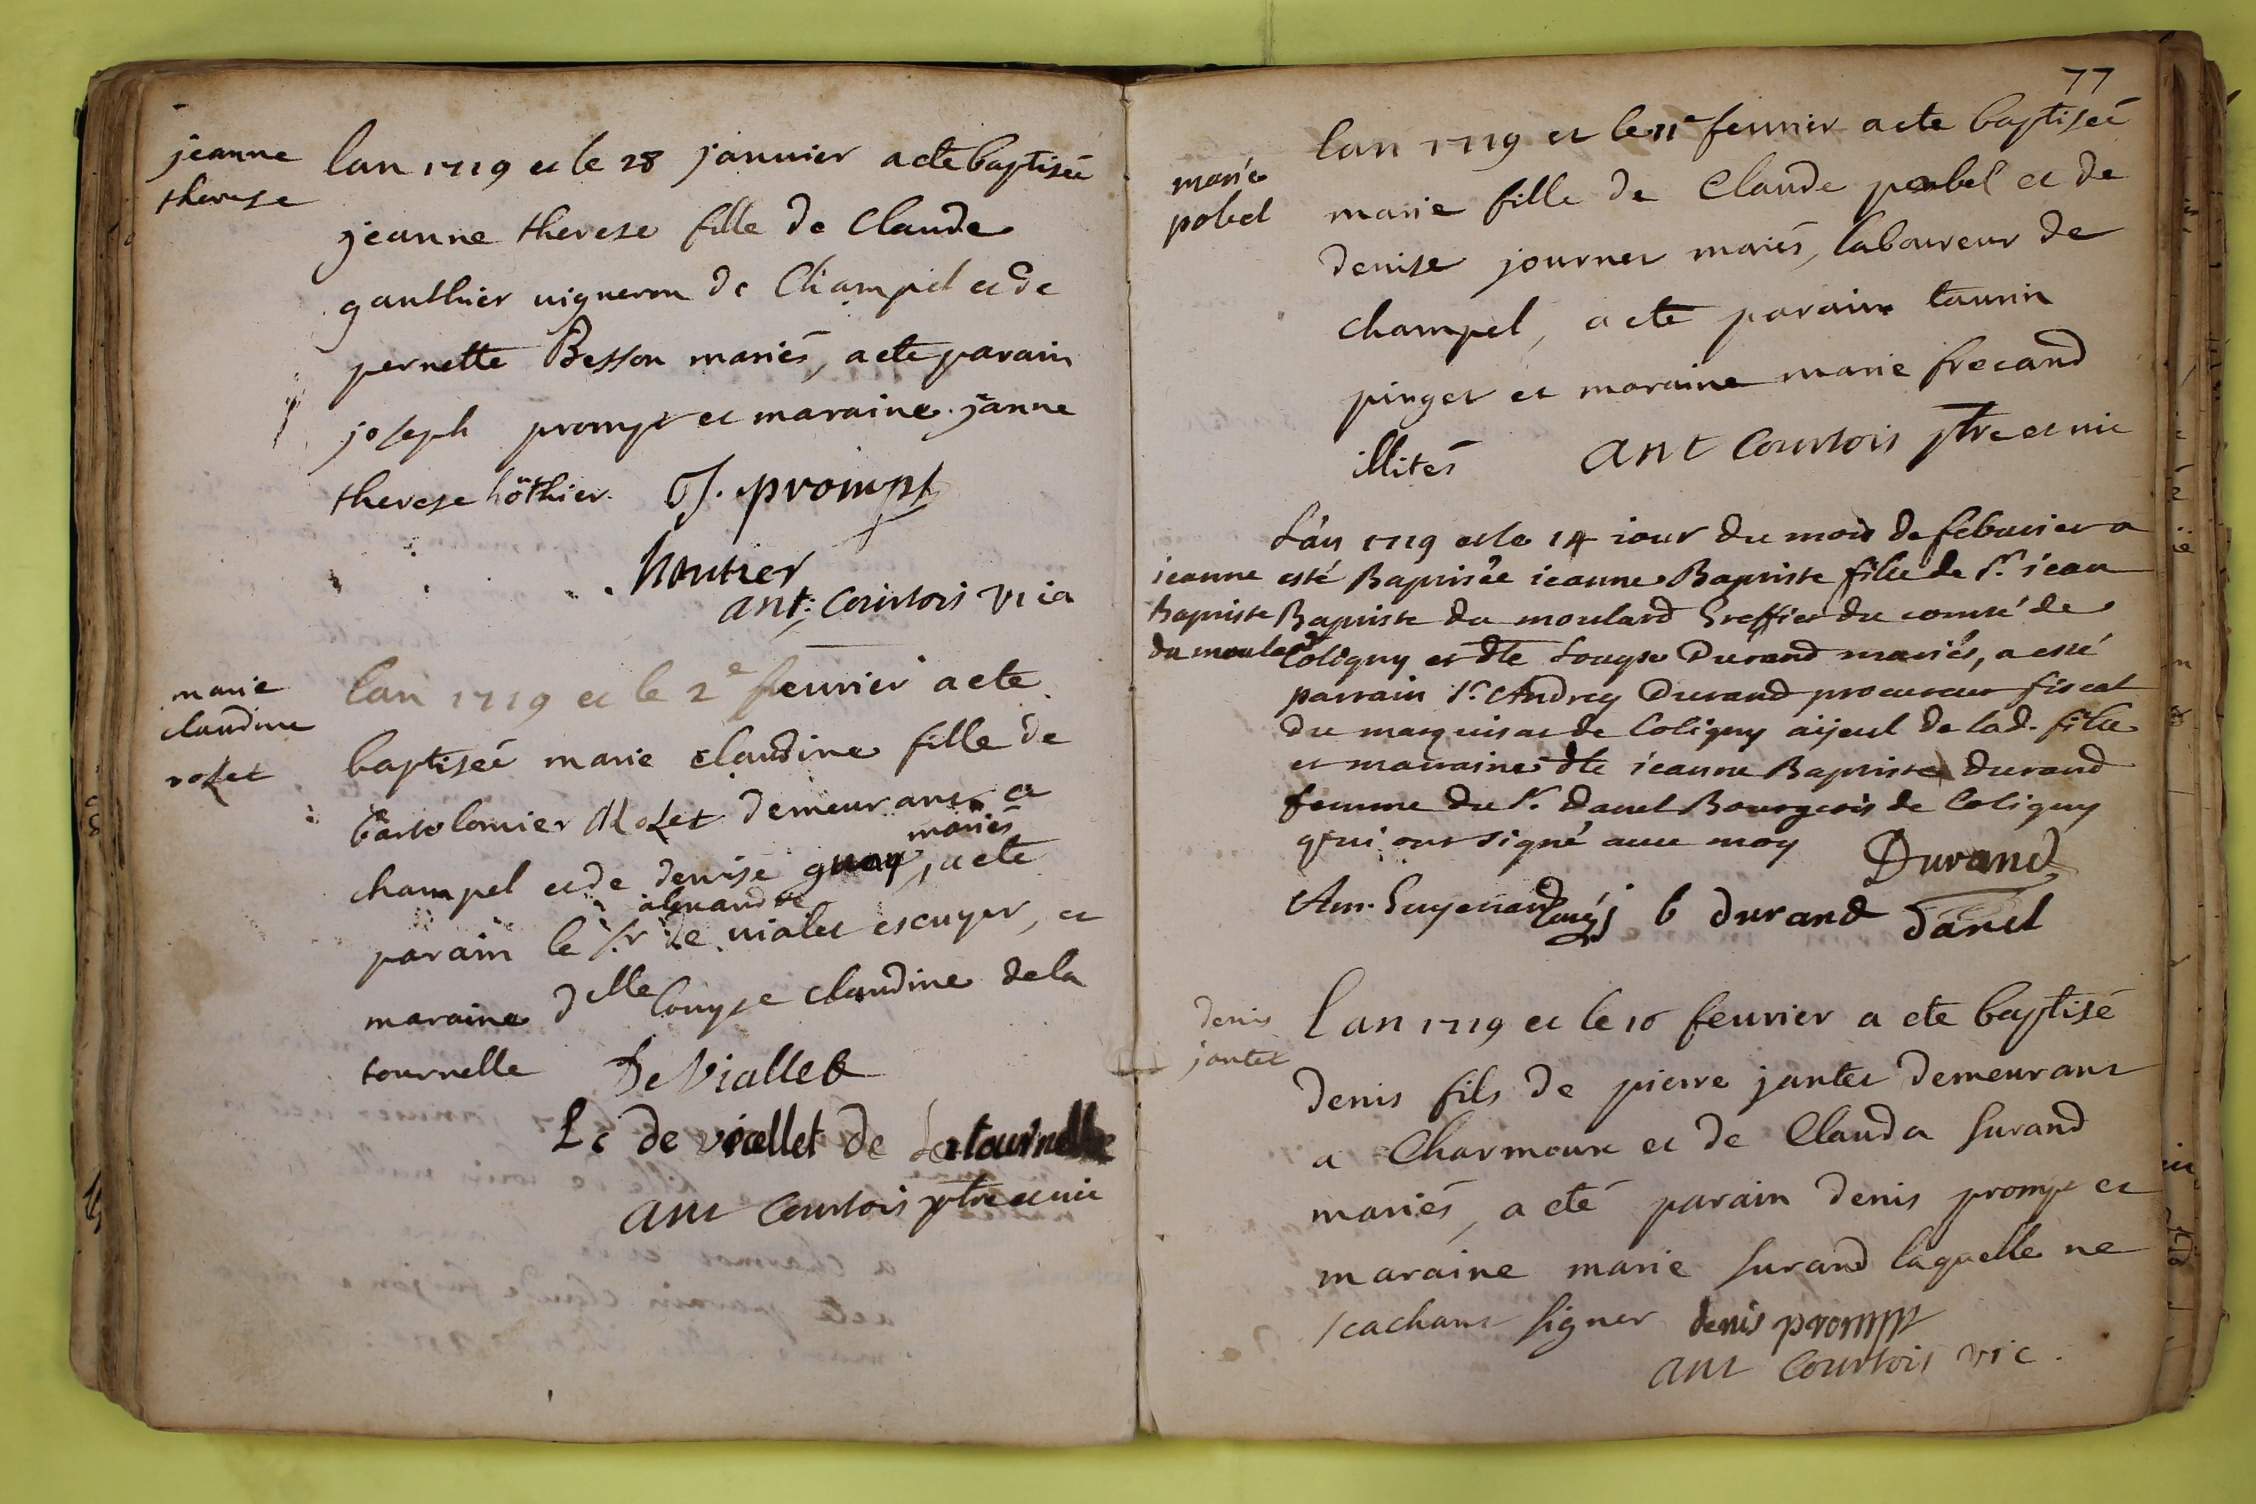 jeanne
therese
lan 1719 et le 28 januier a ete baptiseé
jeanne therese fille de Claude
gauthier uigneron de Champel et de
pernette Besson mariés, a ete parain
joseph prompt et maraine janne
therese hôthier. J. prompt
hontier
ant: Courtois vica
marie
claudine
rolet
lan 1719 et le 2e feurier a ete
baptiseé marie claudine fille de
bartolomier Rolet demeurant a
champel et de denise guay mariés, a ete
parain le sr alexandre de uialet escuyer, et
maraine delle louyse claudine dela
tournelle De Viallet
L c de viallet de La tournelle
ant Courtois ptre et uic
77
marie
pobel
lan 1719 et le 11e feurier a ete baptiseé
marie fille de Claude pobel et de
denise journet mariés, laboureur de
champel, a ete parain taurin
pinget et maraine marie frecand
illités ant Courtois ptre et uic
jeanne
Baptiste
du moulard
L'an 1719 et le 14 iour du mois de feburier a
esté Baptisée ieanne Baptiste fille de Sr. iean
Baptiste du moulard Greffier du comté de
Coligny et dlle Louyse Durand mariés, a esté
parrain Sr. Andrey Durand procureur fiscal
du marquisat de Coligny aijeul de lad. fille
et marraine dlle ieanne Baptiste Durand
femme du Sr. dauel Bourgeois de Coligny
qui ont signé auec moy Durand
Ant. Guyenard curé j b durand Danel
denis
jantet
L an 1719 et le 16 feurier a ete baptisé
denis fils de pierre jantet demeurant
a Charmoux et de Clauda surand
mariés, a eté parain denis prompt et
maraine marie surand laquelle ne
scachant signer denis prompt
ant Courtois vic.